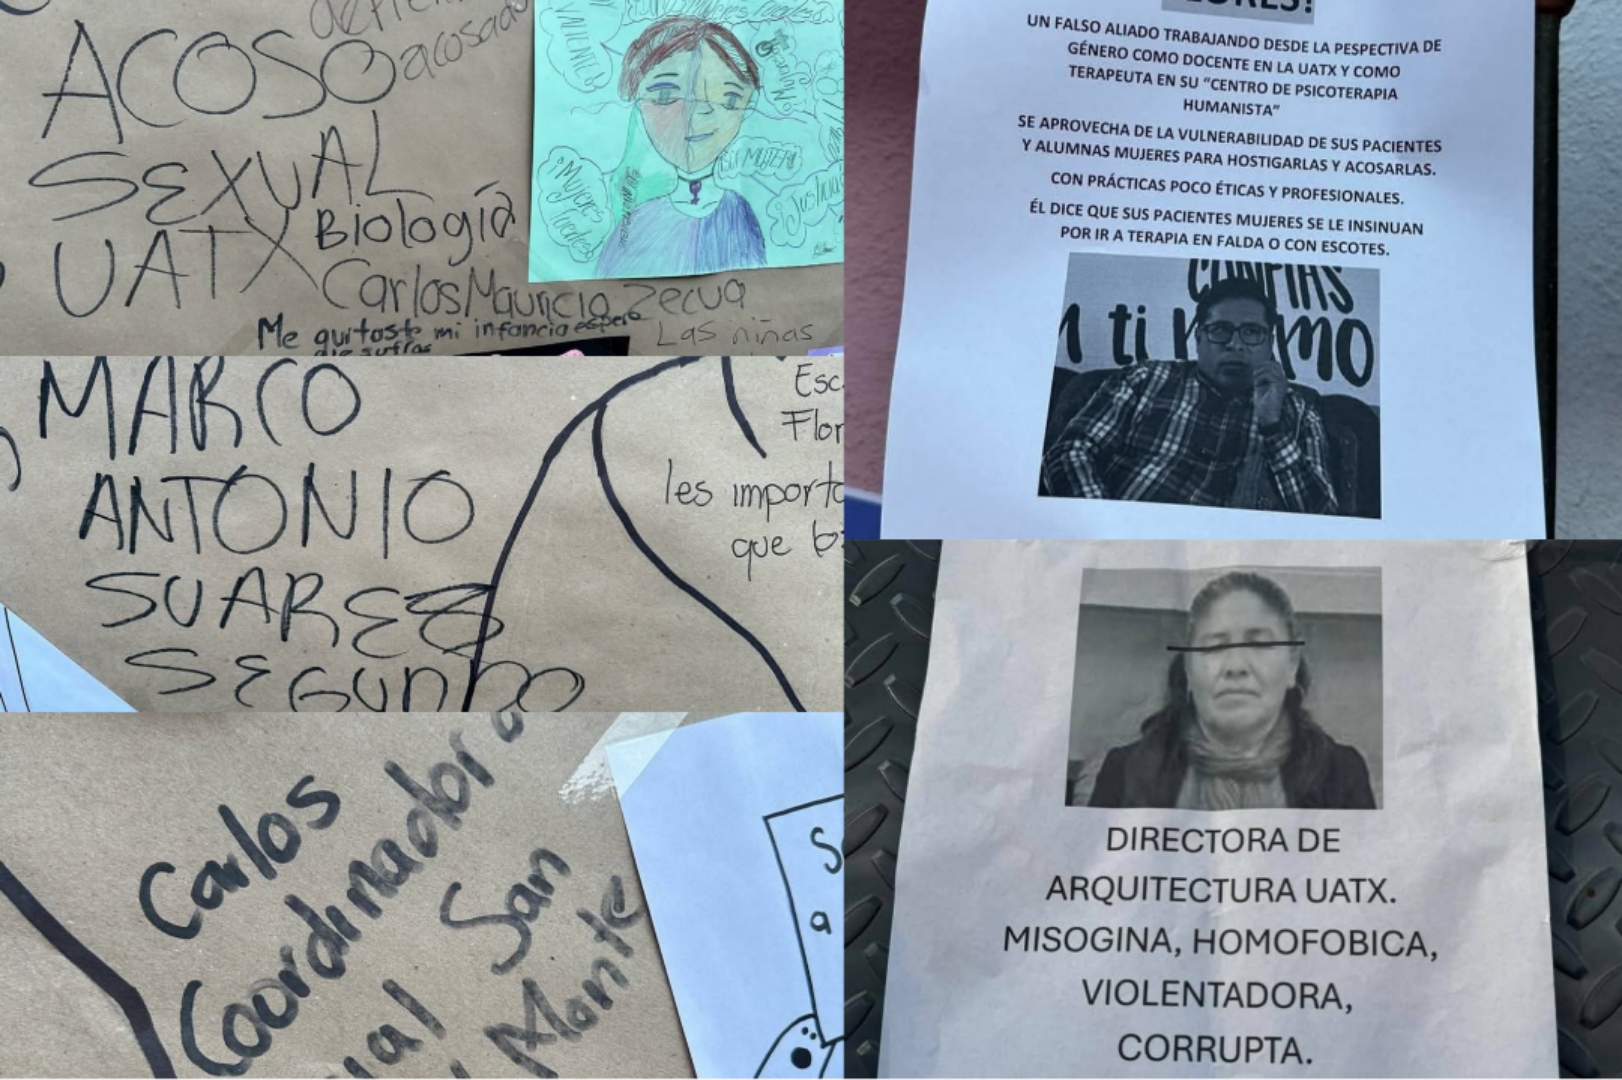 ACOSO
acosado
SEXUAL
UATX Biología
Carlos Mauricio Zecua
Me quitaste mi infancia espero
que sufras
Las niñas
VALIENTE
¡Mujeres
fuertes!
¡Justicia!
MARCO
ANTONIO
SUAREZ
SEGUNDO
Esc
Flor
les importa
que
Carlos
Coordinador
San
Monte
S
a
UN FALSO ALIADO TRABAJANDO DESDE LA PESPECTIVA DE
GÉNERO COMO DOCENTE EN LA UATX Y COMO
TERAPEUTA EN SU “CENTRO DE PSICOTERAPIA
HUMANISTA”
SE APROVECHA DE LA VULNERABILIDAD DE SUS PACIENTES
Y ALUMNAS MUJERES PARA HOSTIGARLAS Y ACOSARLAS.
CON PRÁCTICAS POCO ÉTICAS Y PROFESIONALES.
ÉL DICE QUE SUS PACIENTES MUJERES SE LE INSINUAN
POR IR A TERAPIA EN FALDA O CON ESCOTES.
CONFIAS
ti
DIRECTORA DE
ARQUITECTURA UATX.
MISOGINA, HOMOFOBICA,
VIOLENTADORA,
CORRUPTA.